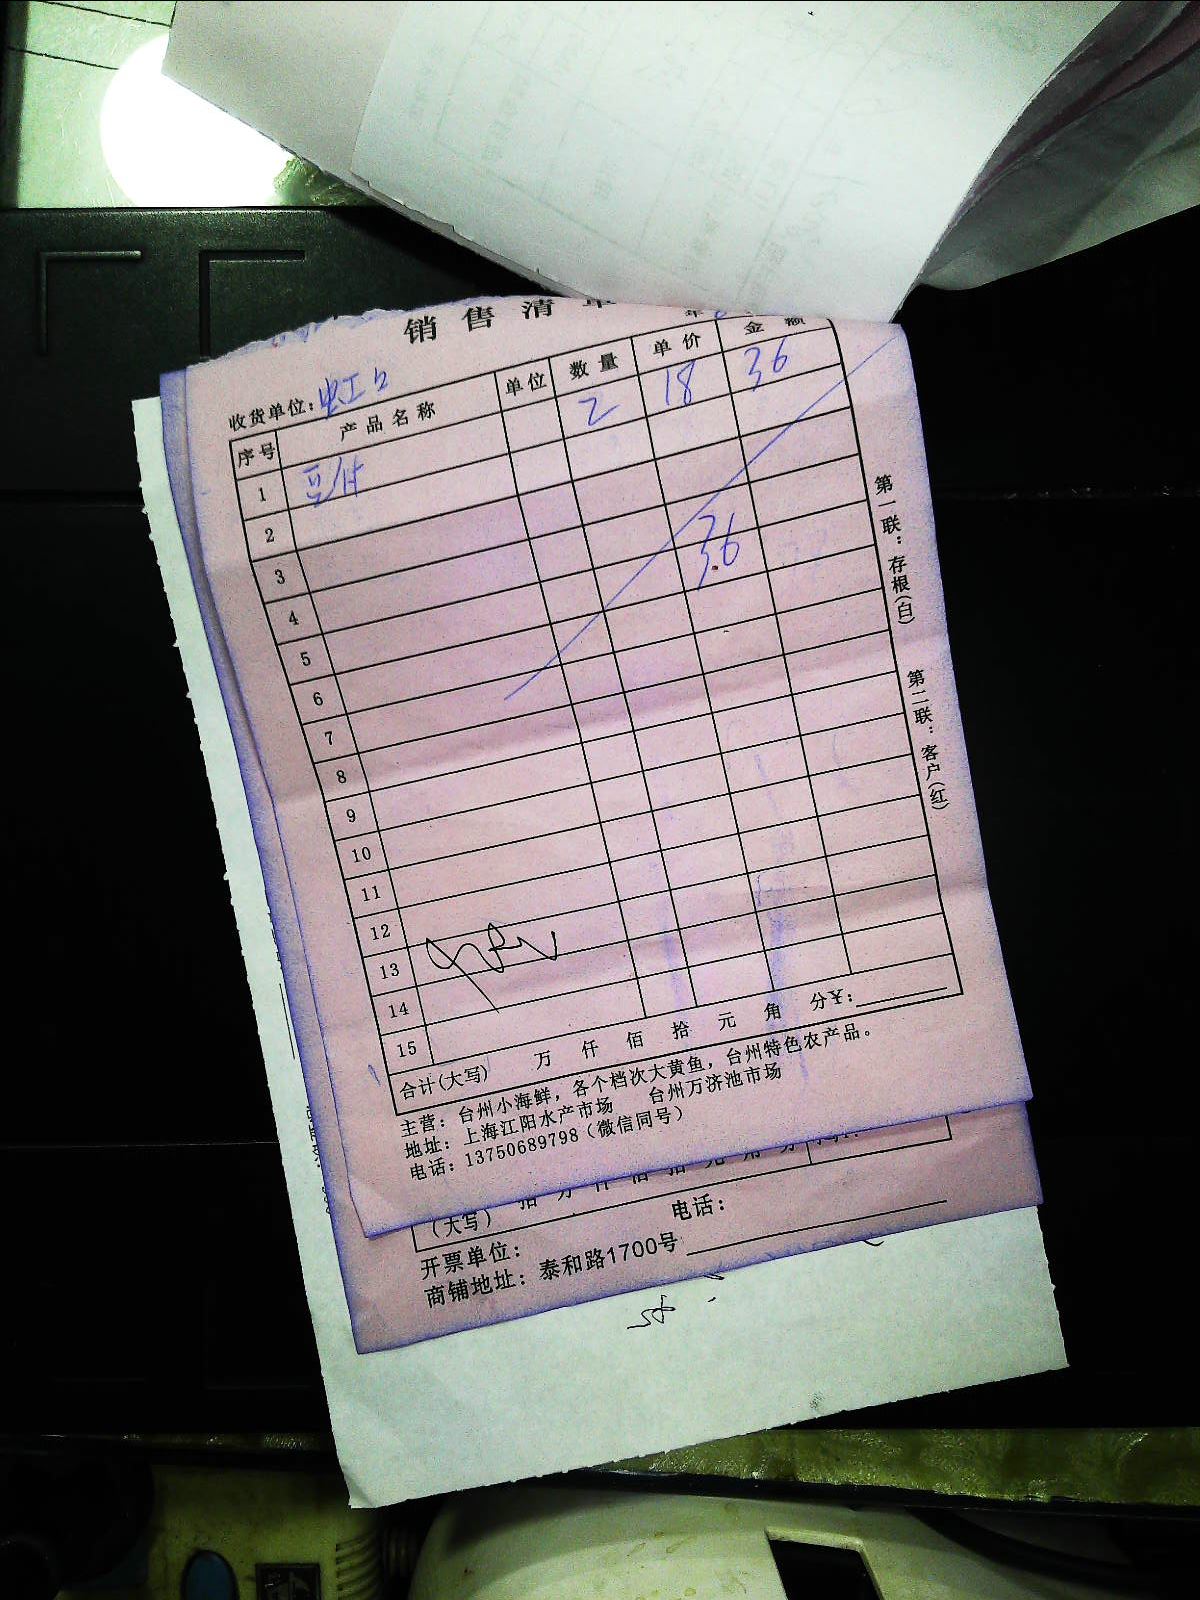 销售清单
收货单位：虹口
序号 产品名称 单位 数量 单价 金额
1 豆付 2 18 36
2
3
4 36
5
6
7
8
9
10
11
12
13
14
15
合计(大写) 万 仟 佰 拾 元 角 分¥：
主营：台州小海鲜，各个档次大黄鱼，台州特色农产品。
地址：上海江阳水产市场 台州万济池市场
电话：13750689798（微信同号）
第一联：存根（白）
第二联：客户（红）
（大写） 拾 万 仟 佰 拾 元 角 分
开票单位： 电话：
商铺地址：泰和路1700号